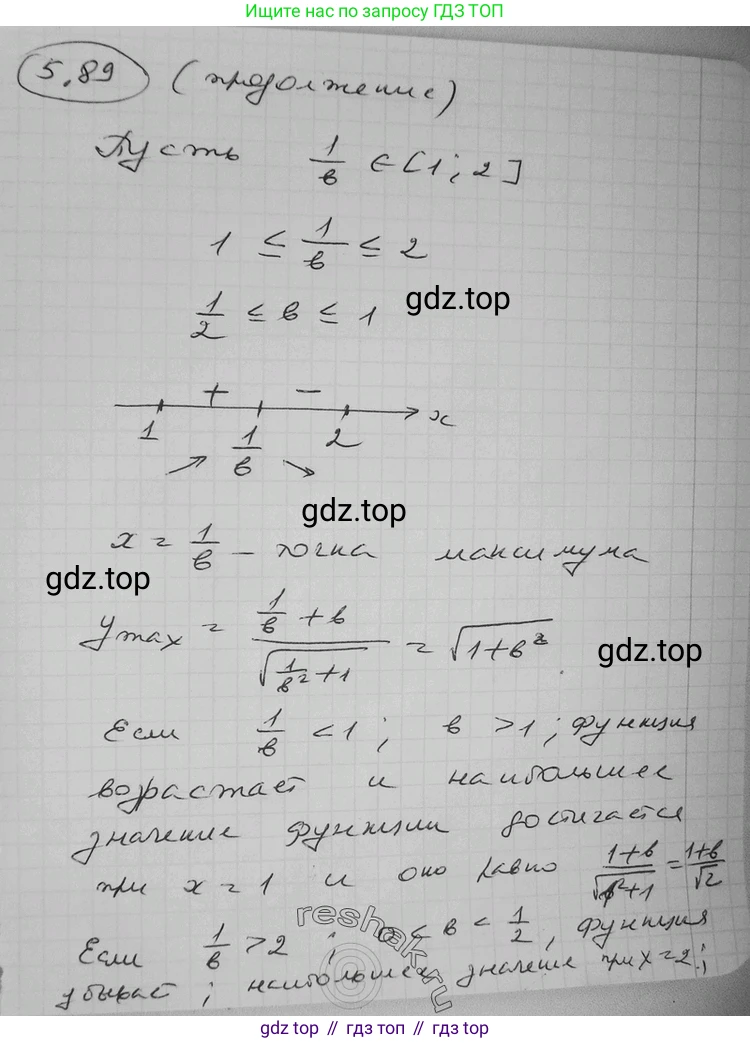 Ищите нас по запросу ГДЗ ТОП
5.89 (продолжение)
Пусть 1/в ∈ [1; 2]
1 ≤ 1/в ≤ 2
gdz.top
1/2 ≤ в ≤ 1
+ −
1 1/в 2 x
↗ ↘
gdz.top
x = 1/в – точка максимума
gdz.top
y max = (1/в + в)/√(1/в² + 1) = √(1+в²).
gdz.top
Если 1/в < 1; в > 1; функция
возрастает и наибольшее
значение функции достигается
при x = 1 и оно равно (1+в)/√(1²+1) = (1+в)/√2
Если 1/в > 2; 0 < в < 1/2, функция
убывает; наибольшее значение при x = 2;
reshak.ru
gdz.top // гдз топ // gdz top